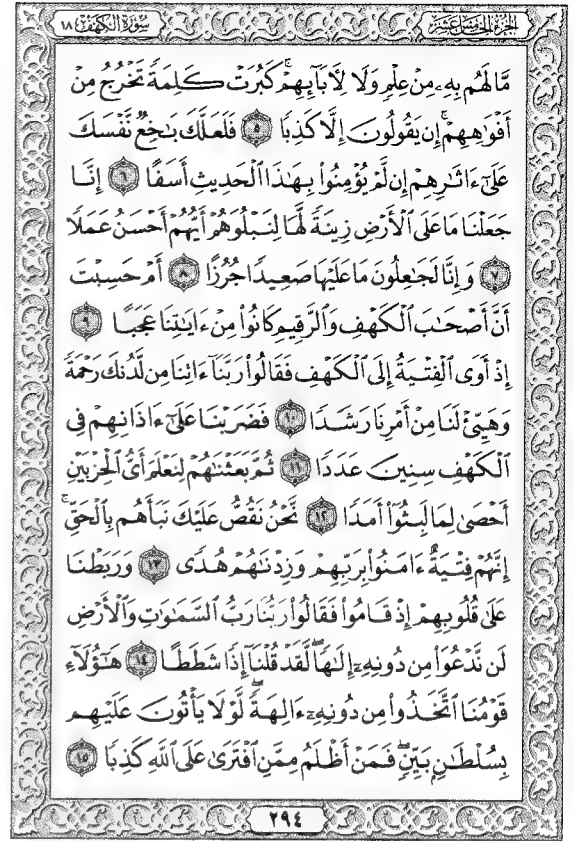 سُورَةُ الكَهْفِ ١٨
الجُزْءُ الخَامِسَ عَشَرَ
مَّا لَهُم بِهِۦ مِنْ عِلْمٍ وَلَا لِأَبَآئِهِمْ ۚ كَبُرَتْ كَلِمَةً تَخْرُجُ مِنْ
أَفْوَٰهِهِمْ ۚ إِن يَقُولُونَ إِلَّا كَذِبًا ٥ فَلَعَلَّكَ بَٰخِعٌ نَّفْسَكَ
عَلَىٰٓ ءَاثَٰرِهِمْ إِن لَّمْ يُؤْمِنُوا۟ بِهَٰذَا ٱلْحَدِيثِ أَسَفًا ٦ إِنَّا
جَعَلْنَا مَا عَلَى ٱلْأَرْضِ زِينَةً لَّهَا لِنَبْلُوَهُمْ أَيُّهُمْ أَحْسَنُ عَمَلًا
٧ وَإِنَّا لَجَٰعِلُونَ مَا عَلَيْهَا صَعِيدًا جُرُزًا ٨ أَمْ حَسِبْتَ
أَنَّ أَصْحَٰبَ ٱلْكَهْفِ وَٱلرَّقِيمِ كَانُوا۟ مِنْ ءَايَٰتِنَا عَجَبًا ٩
إِذْ أَوَى ٱلْفِتْيَةُ إِلَى ٱلْكَهْفِ فَقَالُوا۟ رَبَّنَآ ءَاتِنَا مِن لَّدُنكَ رَحْمَةً
وَهَيِّئْ لَنَا مِنْ أَمْرِنَا رَشَدًا ١٠ فَضَرَبْنَا عَلَىٰٓ ءَاذَانِهِمْ فِى
ٱلْكَهْفِ سِنِينَ عَدَدًا ١١ ثُمَّ بَعَثْنَٰهُمْ لِنَعْلَمَ أَىُّ ٱلْحِزْبَيْنِ
أَحْصَىٰ لِمَا لَبِثُوٓا۟ أَمَدًا ١٢ نَّحْنُ نَقُصُّ عَلَيْكَ نَبَأَهُم بِٱلْحَقِّ ۚ
إِنَّهُمْ فِتْيَةٌ ءَامَنُوا۟ بِرَبِّهِمْ وَزِدْنَٰهُمْ هُدًى ١٣ وَرَبَطْنَا
عَلَىٰ قُلُوبِهِمْ إِذْ قَامُوا۟ فَقَالُوا۟ رَبُّنَا رَبُّ ٱلسَّمَٰوَٰتِ وَٱلْأَرْضِ
لَن نَّدْعُوَا۟ مِن دُونِهِۦٓ إِلَٰهًا ۖ لَّقَدْ قُلْنَآ إِذًا شَطَطًا ١٤ هَٰٓؤُلَآءِ
قَوْمُنَا ٱتَّخَذُوا۟ مِن دُونِهِۦٓ ءَالِهَةً ۖ لَّوْلَا يَأْتُونَ عَلَيْهِم
بِسُلْطَٰنٍۭ بَيِّنٍ ۖ فَمَنْ أَظْلَمُ مِمَّنِ ٱفْتَرَىٰ عَلَى ٱللَّهِ كَذِبًا ١٥
٢٩٤